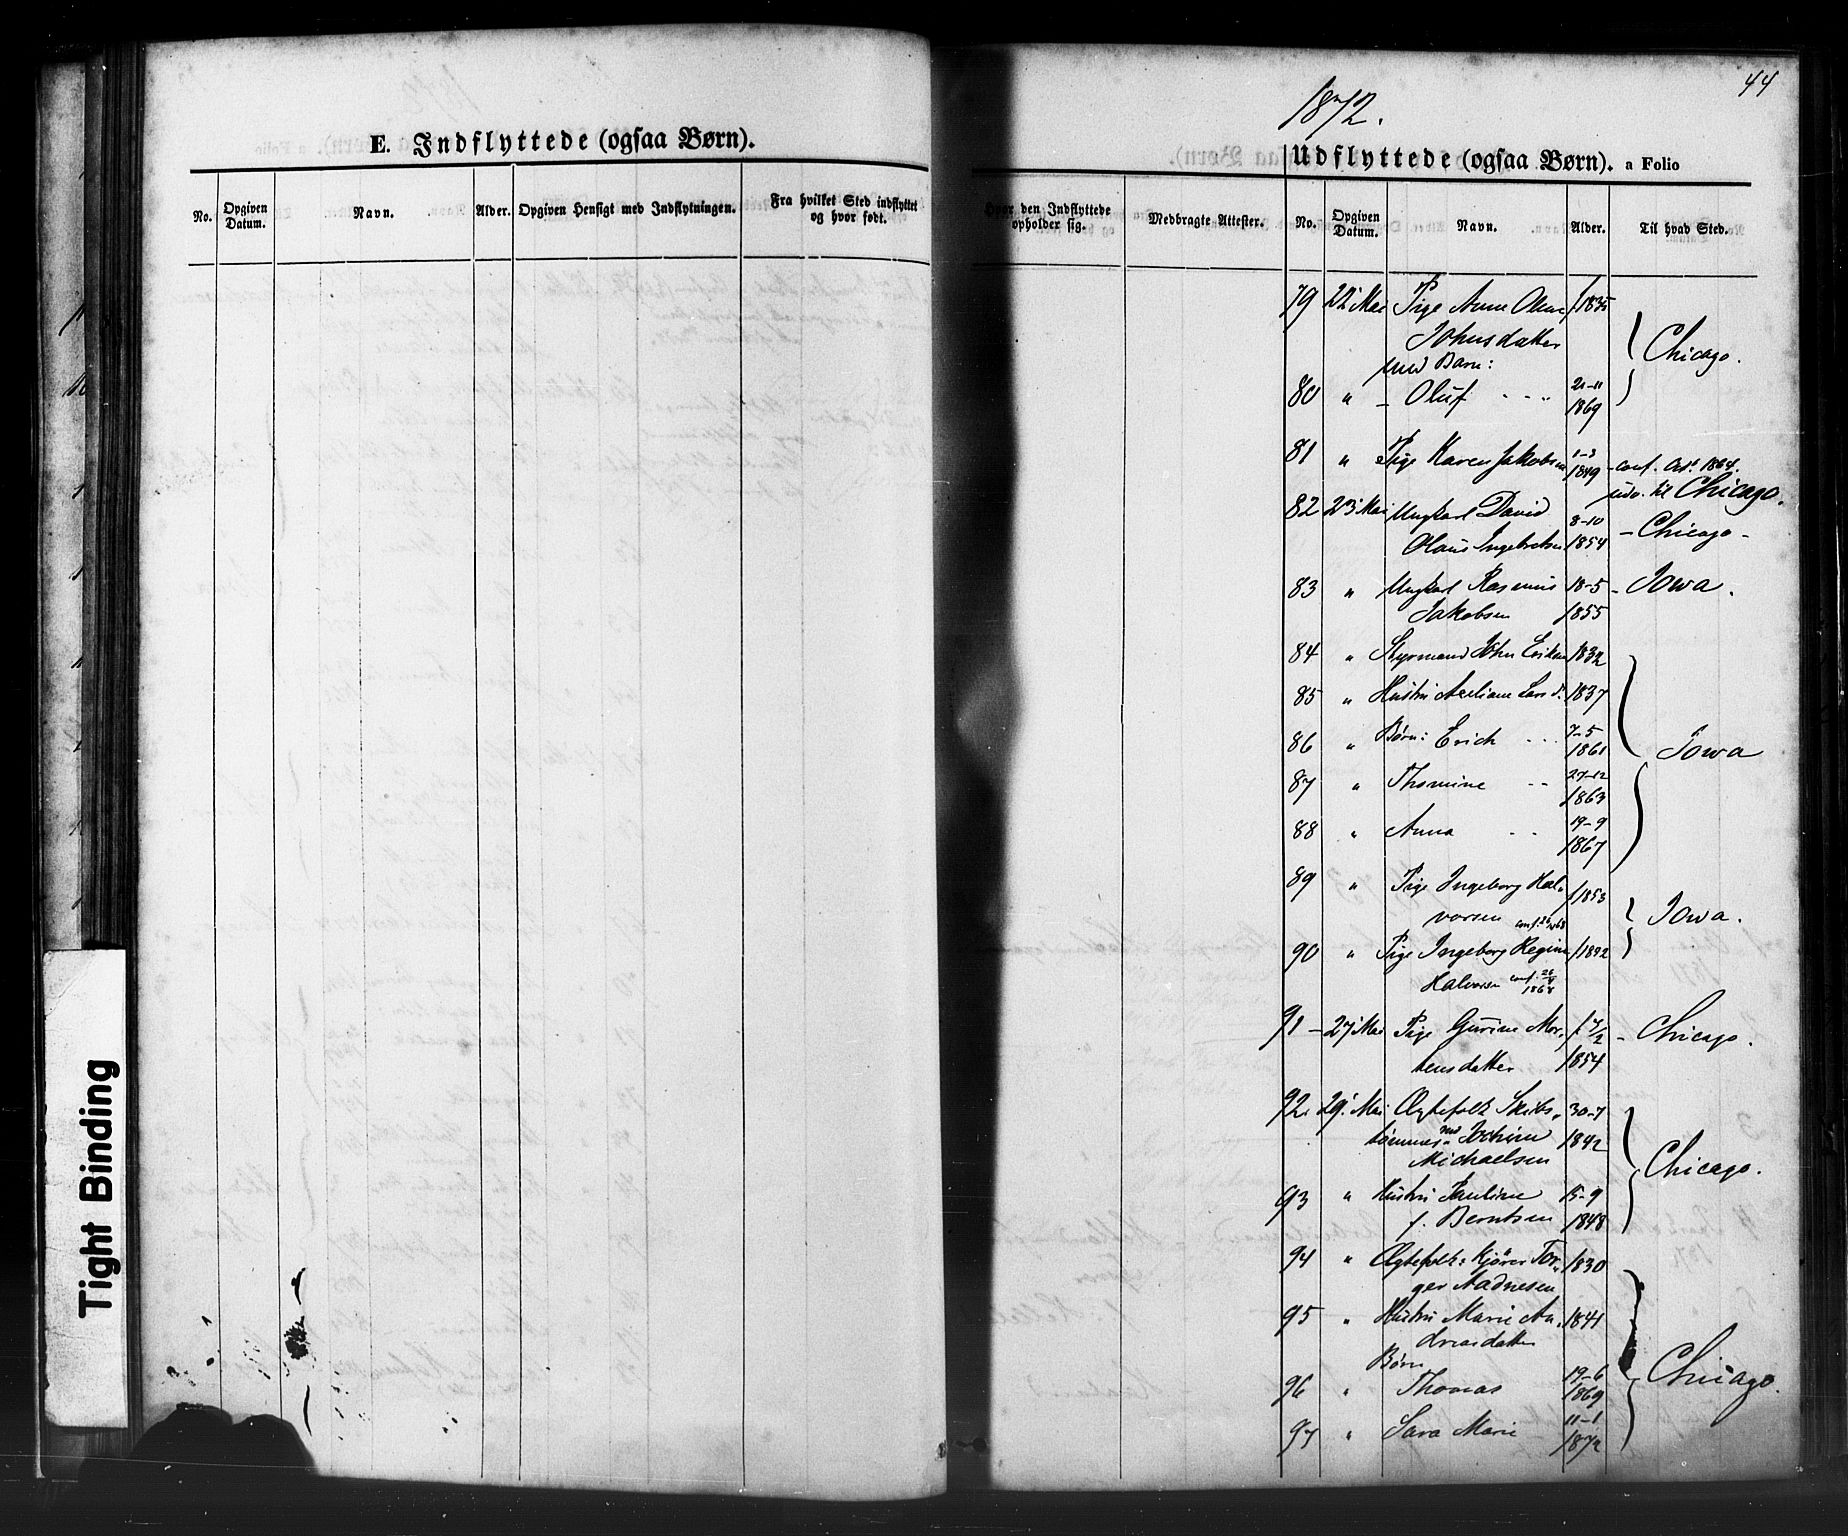 44
1872.
E. Indflyttede (ogsaa Børn).
No. Opgiven Datum. Navn. Alder. Opgiven Hensigt med Indflytningen. Fra hvilket Sted indflyttet og hvor født.
Hvor den Indflyttede opholder sig. Medbragte Attester.
Udflyttede (ogsaa Børn). a Folio
No. Opgiven Datum. Navn. Alder. Til hvad Sted.
79 22 Mai Pige Anne Oline f/1835
Johnsdatter
med Barn: Chicago.
80 " - Oluf 21-11
1869
81 " Pige Karen Jakobsen 1-3
1849 - conf. Oct. 1864.
udv. til Chicago.
82 23 Mai Ungkarl David 8-10
Olaus Ingebretsen 1854 - Chicago -
83 " Ungkarl Rasmus 18-5 - Iowa.
Jakobsen 1855
84 " Styrmand John Eriksen 1832
85 " Hustru Lars d. 1837
86 " Børn: Erich 7-5
1861 Iowa
87 " Thomine 27-12
1863
88 " Anna 19-9
1867
89 " Pige Ingeborg Hal- f/1853
vorsen conf. 1868 Iowa.
90 " Pige Ingeborg Regine
Halvorsen conf. 1868
91 - 27 Mai Pige Gurine Mor- - Chicago.
tensdatter 1854
92 29 Mai Ægtefolk Skibs- 30-7
tømmermd Jochim 1842
Michaelsen Chicago.
93 " Hustru Pauline 15-9
f. Berntsen 1848
94 " Ægtefolk: Kjører Tor- 1830
ger Aadnesen
95 " Hustru Marie An- 1841
dreasdatter
Børn Chicago.
96 " Thomas 19-6
1869
97 " Sara Marie 11-1
1872
Tight Binding